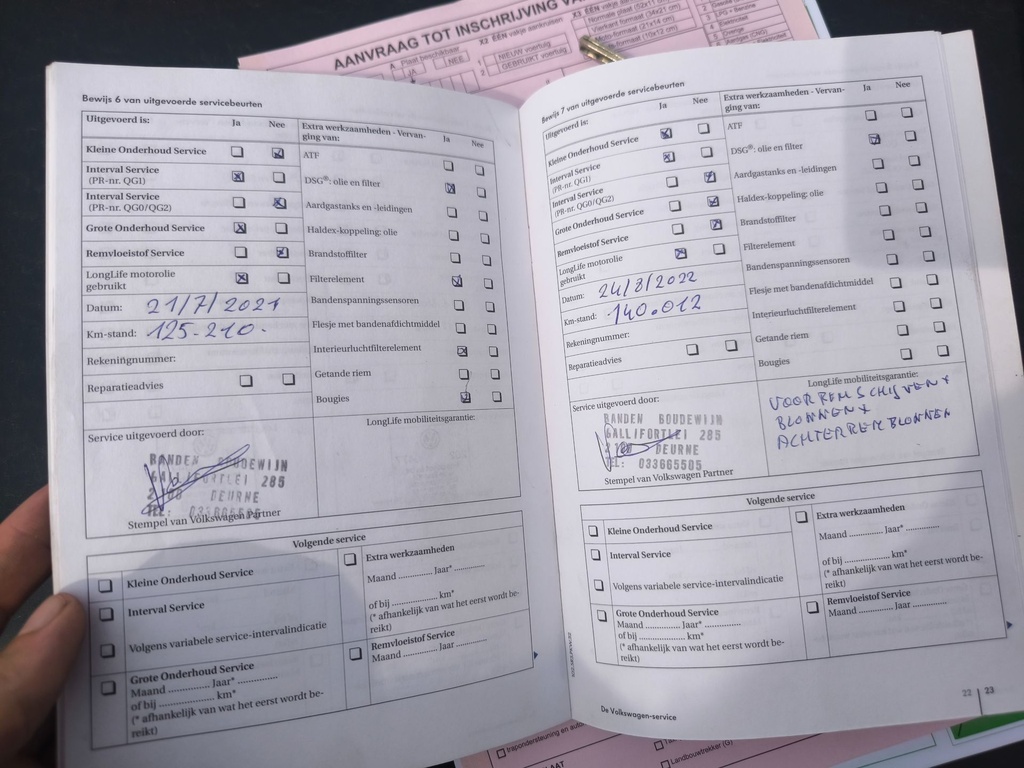 AANVRAAG TOT INSCHRIJVING VA
A Plaat beschikbaar
JA
NEE
X2 ÉÉN vakje aankruisen
1 NIEUW voertuig
2 GEBRUIKT voertuig
X3 ÉÉN
Normale plaat (52x11 cm)
Vierkant formaat (34x21 cm)
Moto-formaat (21x14 cm)
formaat (10x12 cm)
Bewijs 6 van uitgevoerde servicebeurten
Uitgevoerd is: Ja Nee
Kleine Onderhoud Service
Interval Service
(PR-nr. QG1)
Interval Service
(PR-nr. QG0/QG2)
Grote Onderhoud Service
Remvloeistof Service
LongLife motorolie
gebruikt
Datum: 21/7/2021
Km-stand: 125-210-
Rekeningnummer:
Reparatieadvies
Extra werkzaamheden - Vervan-
ging van: Ja Nee
ATF
DSG®: olie en filter
Aardgastanks en -leidingen
Haldex-koppeling: olie
Brandstoffilter
Filterelement
Bandenspanningssensoren
Flesje met bandenafdichtmiddel
Interieurluchtfilterelement
Getande riem
Bougies
Service uitgevoerd door:
BANDEN BOUDEWIJN
GALLIFORTLEI 285
2100 DEURNE
TEL: 033665505
Stempel van Volkswagen Partner
LongLife mobiliteitsgarantie:
Volgende service
Kleine Onderhoud Service
Interval Service
Volgens variabele service-intervalindicatie
Grote Onderhoud Service
Maand .............. Jaar* ..............
of bij .................... km*
(* afhankelijk van wat het eerst wordt be-
reikt)
Extra werkzaamheden
Maand .............. Jaar* ..............
of bij .................... km*
(* afhankelijk van wat het eerst wordt be-
reikt)
Remvloeistof Service
Maand .............. Jaar ..............
Bewijs 7 van uitgevoerde servicebeurten
Uitgevoerd is: Ja Nee
Kleine Onderhoud Service
Interval Service
(PR-nr. QG1)
Interval Service
(PR-nr. QG0/QG2)
Grote Onderhoud Service
Remvloeistof Service
LongLife motorolie
gebruikt
Datum: 24/8/2022
Km-stand: 140.012
Rekeningnummer:
Reparatieadvies
Extra werkzaamheden - Vervan-
ging van: Ja Nee
ATF
DSG®: olie en filter
Aardgastanks en -leidingen
Haldex-koppeling: olie
Brandstoffilter
Filterelement
Bandenspanningssensoren
Flesje met bandenafdichtmiddel
Interieurluchtfilterelement
Getande riem
Bougies
Service uitgevoerd door:
BANDEN BOUDEWIJN
GALLIFORTLEI 285
2100 DEURNE
TEL: 033665505
Stempel van Volkswagen Partner
LongLife mobiliteitsgarantie:
VOORREMSCHIJVEN+
BLOKKEN+
ACHTERREMBLOKKEN
Volgende service
Kleine Onderhoud Service
Interval Service
Volgens variabele service-intervalindicatie
Grote Onderhoud Service
Maand .............. Jaar* ..............
of bij .................... km*
(* afhankelijk van wat het eerst wordt be-
reikt)
Extra werkzaamheden
Maand .............. Jaar* ..............
of bij .................... km*
(* afhankelijk van wat het eerst wordt be-
reikt)
Remvloeistof Service
Maand .............. Jaar ..............
De Volkswagen-service
22 | 23
Landbouwtrekker (G)